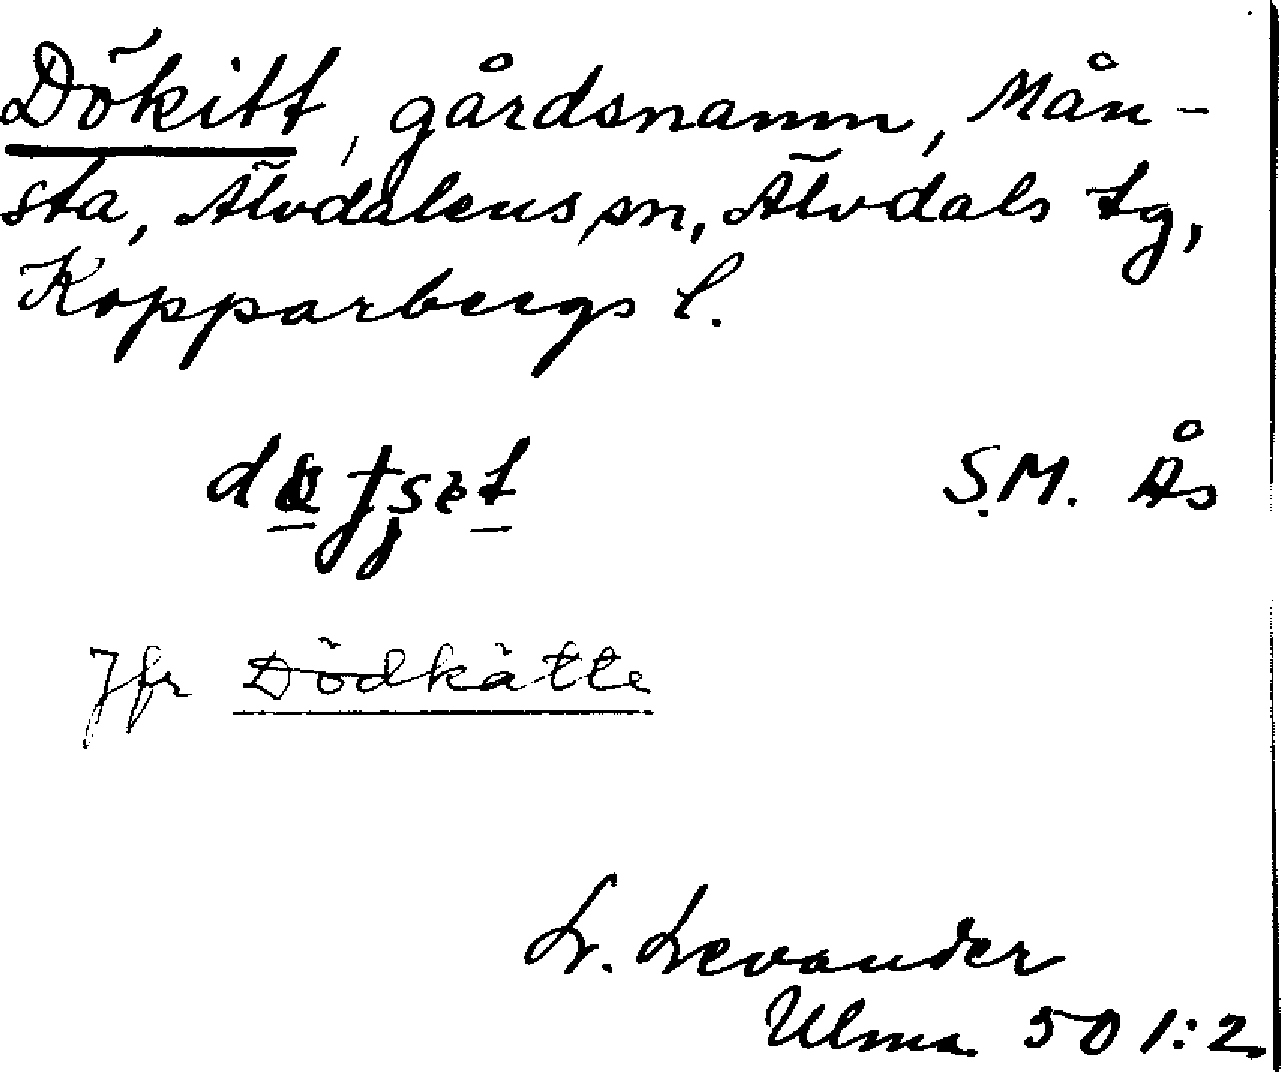 Dökitt, gårdsnamn, Mån-
sta, Älvdalens sn, Älvdals tg,
Kopparbergs l.
S.M. Ås
Jfr Dödkätte
L. Levander
Ulma 501:2